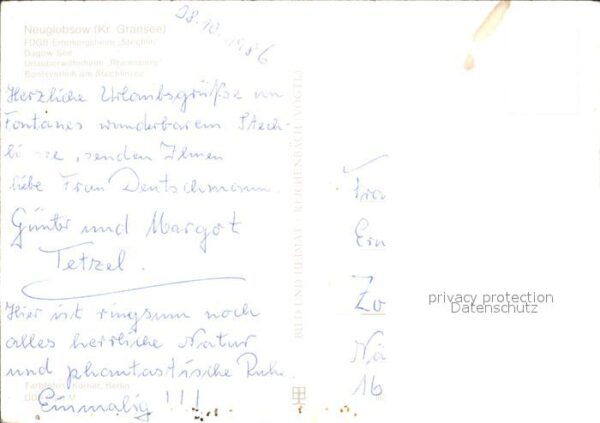 Neuglobsow (Kr. Gransee)
FDGB-Erholungsheim „Stechlin“
Dagow-See
Bootsverleih am Stechlinsee
Herzliche Urlaubsgrüße von
Fontanes wunderbarem Stech-
li see, senden Ihnen
liebe Frau Deutschmann.
Günter und Margot
Tetzel.
Hier ist ringsum noch
alles herrliche Natur
und phantastische Ruhe.
Einmalig !!!
Farbfoto: Körner, Berlin
BILD UND HEIMAT · REICHENBACH (VOGTL)
Fra
Zo
16
privacy protection
Datenschutz